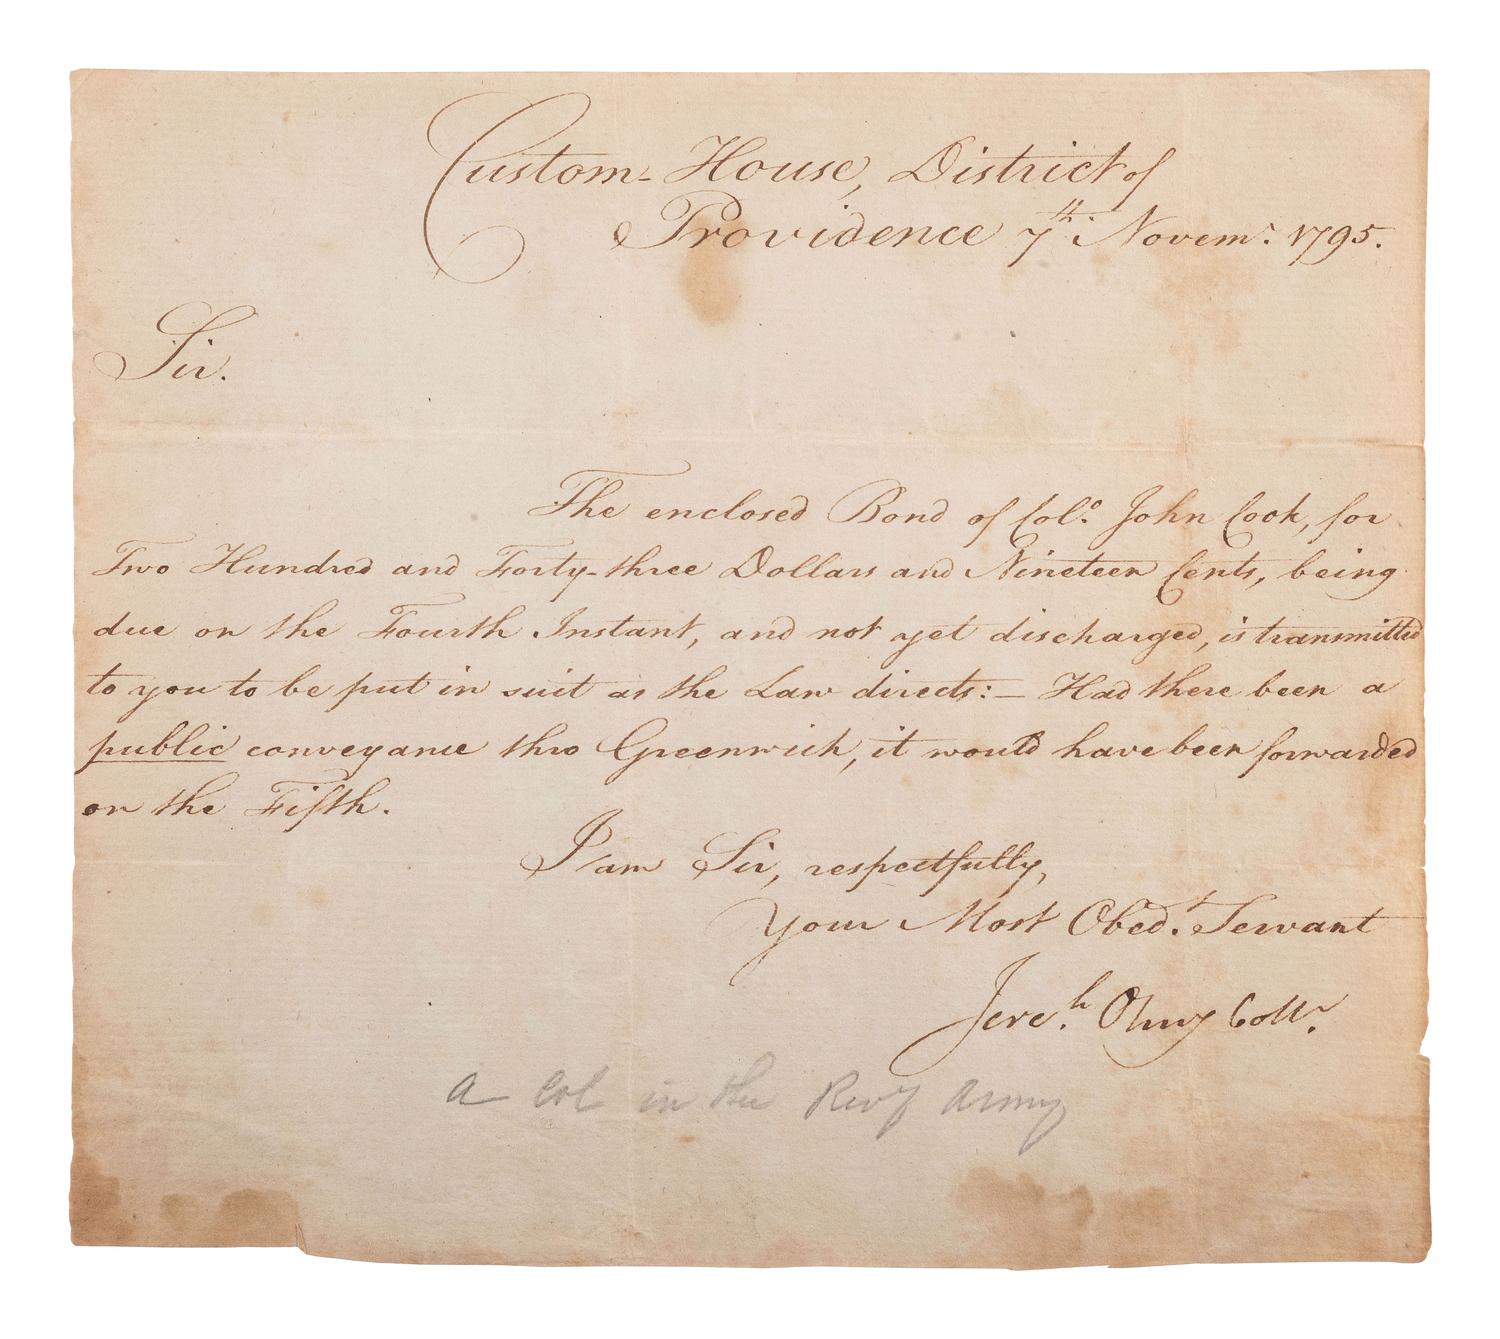 Custom-House, District of
Providence 7th Novemr. 1795.
Sir.
The enclosed Bond of Colo. John Cook, for
Two Hundred and Forty-three Dollars and Nineteen Cents, being
due on the Fourth Instant, and not yet discharged, is transmitted
to you to be put in suit as the Law directs:— Had there been a
public conveyance thro Greenwich, it would have been forwarded
on the Fifth.
I am Sir, respectfully,
Your Most Obedt. Servant
Jereh. Olney Collr.
A Col in the Revy Army